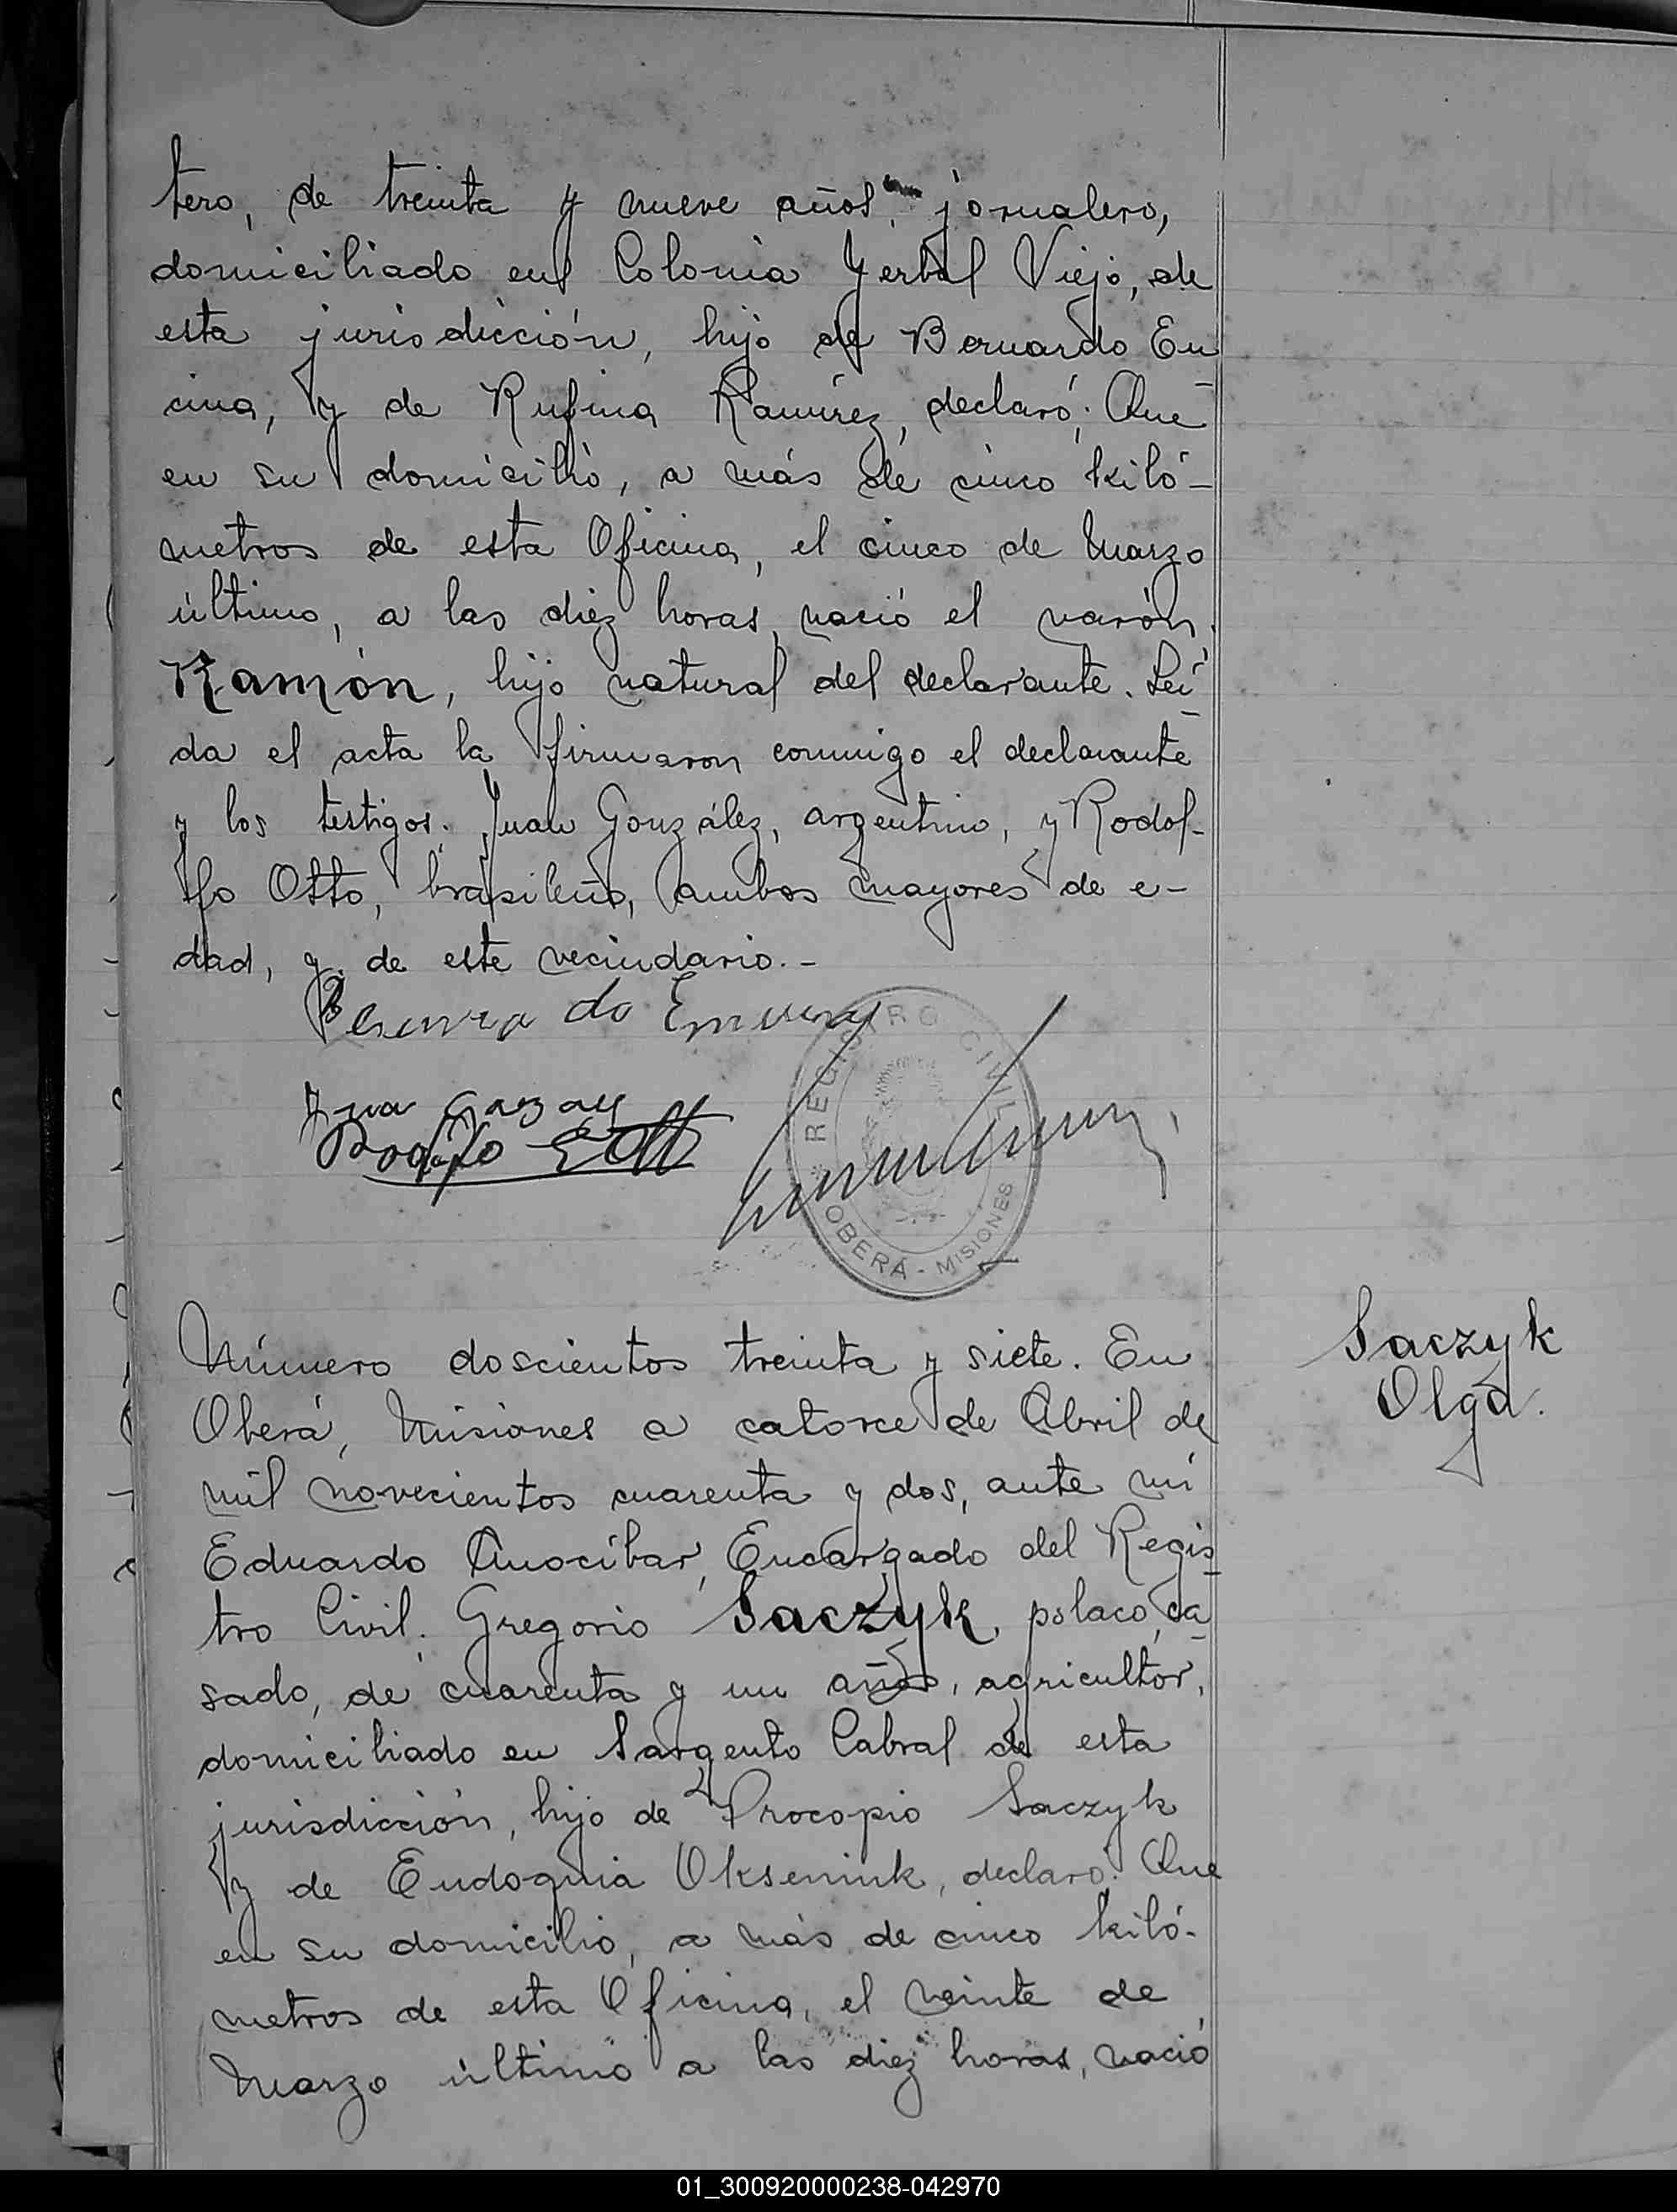 tero, de treinta y nueve años, jornalero,
domiciliado en Colonia Yerbal Viejo, de
esta jurisdicción, hijo de Bernardo En
cina, y de Rufina Ramírez, declaró: Que
en su domicilio, a más de cinco kiló-
metros de esta Oficina, el cinco de Marzo
último, a las diez horas, nació el varón.
Ramón, hijo natural del declarante. Leí-
da el acta la firmaron conmigo el declarante
y los testigos: Juan González, argentino, y Rodol-
fo Otto, brasileño, ambos mayores de e-
dad, y de este vecindario.-
REGISTRO CIVIL
OBERÁ - MISIONES
Número doscientos treinta y siete. En
Oberá, Misiones a catorce de Abril de
mil novecientos cuarenta y dos, ante mí
Eduardo Anocíbar, Encargado del Regis-
tro Civil. Gregorio Saczyk, polaco, ca-
sado, de cuarenta y un años, agricultor,
domiciliado en Sargento Cabral de esta
jurisdicción, hijo de Procopio Saczyk
y de Eudoquia Okseniuk, declaró: Que
en su domicilio, a más de cinco kiló-
metros de esta Oficina, el veinte de
Marzo último a las diez horas, nació
Saczyk
Olga.
01_300920000238-042970